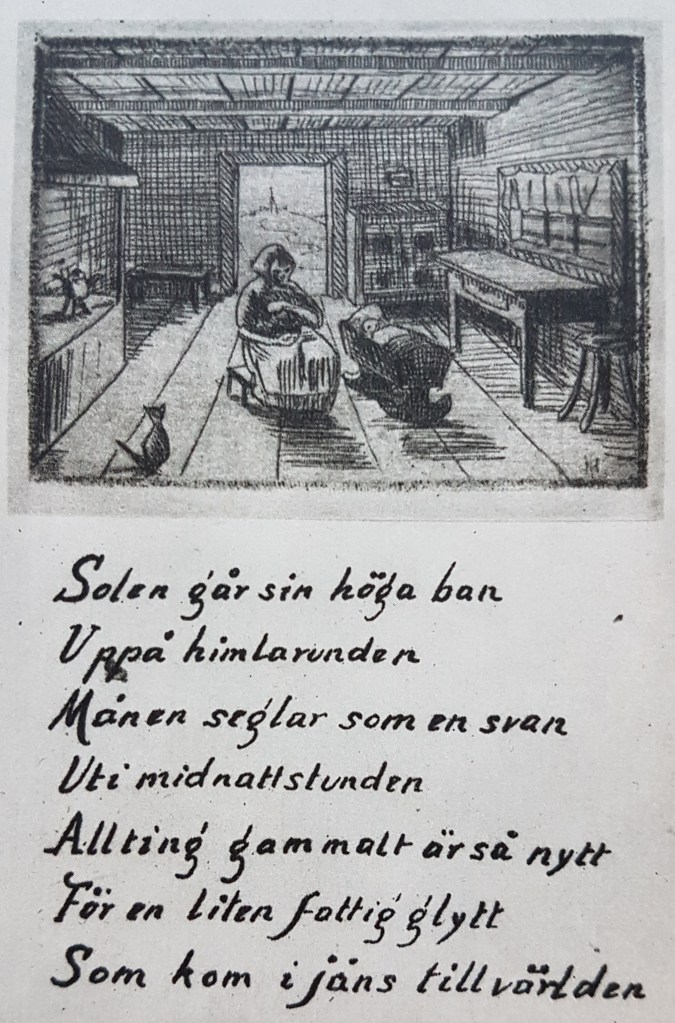 Solen går sin höga ban
Uppå himlarunden
Månen seglar som en svan
Uti midnattstunden
Allting gammalt är så nytt
För en liten fattig glytt
Som kom i jåns till världen